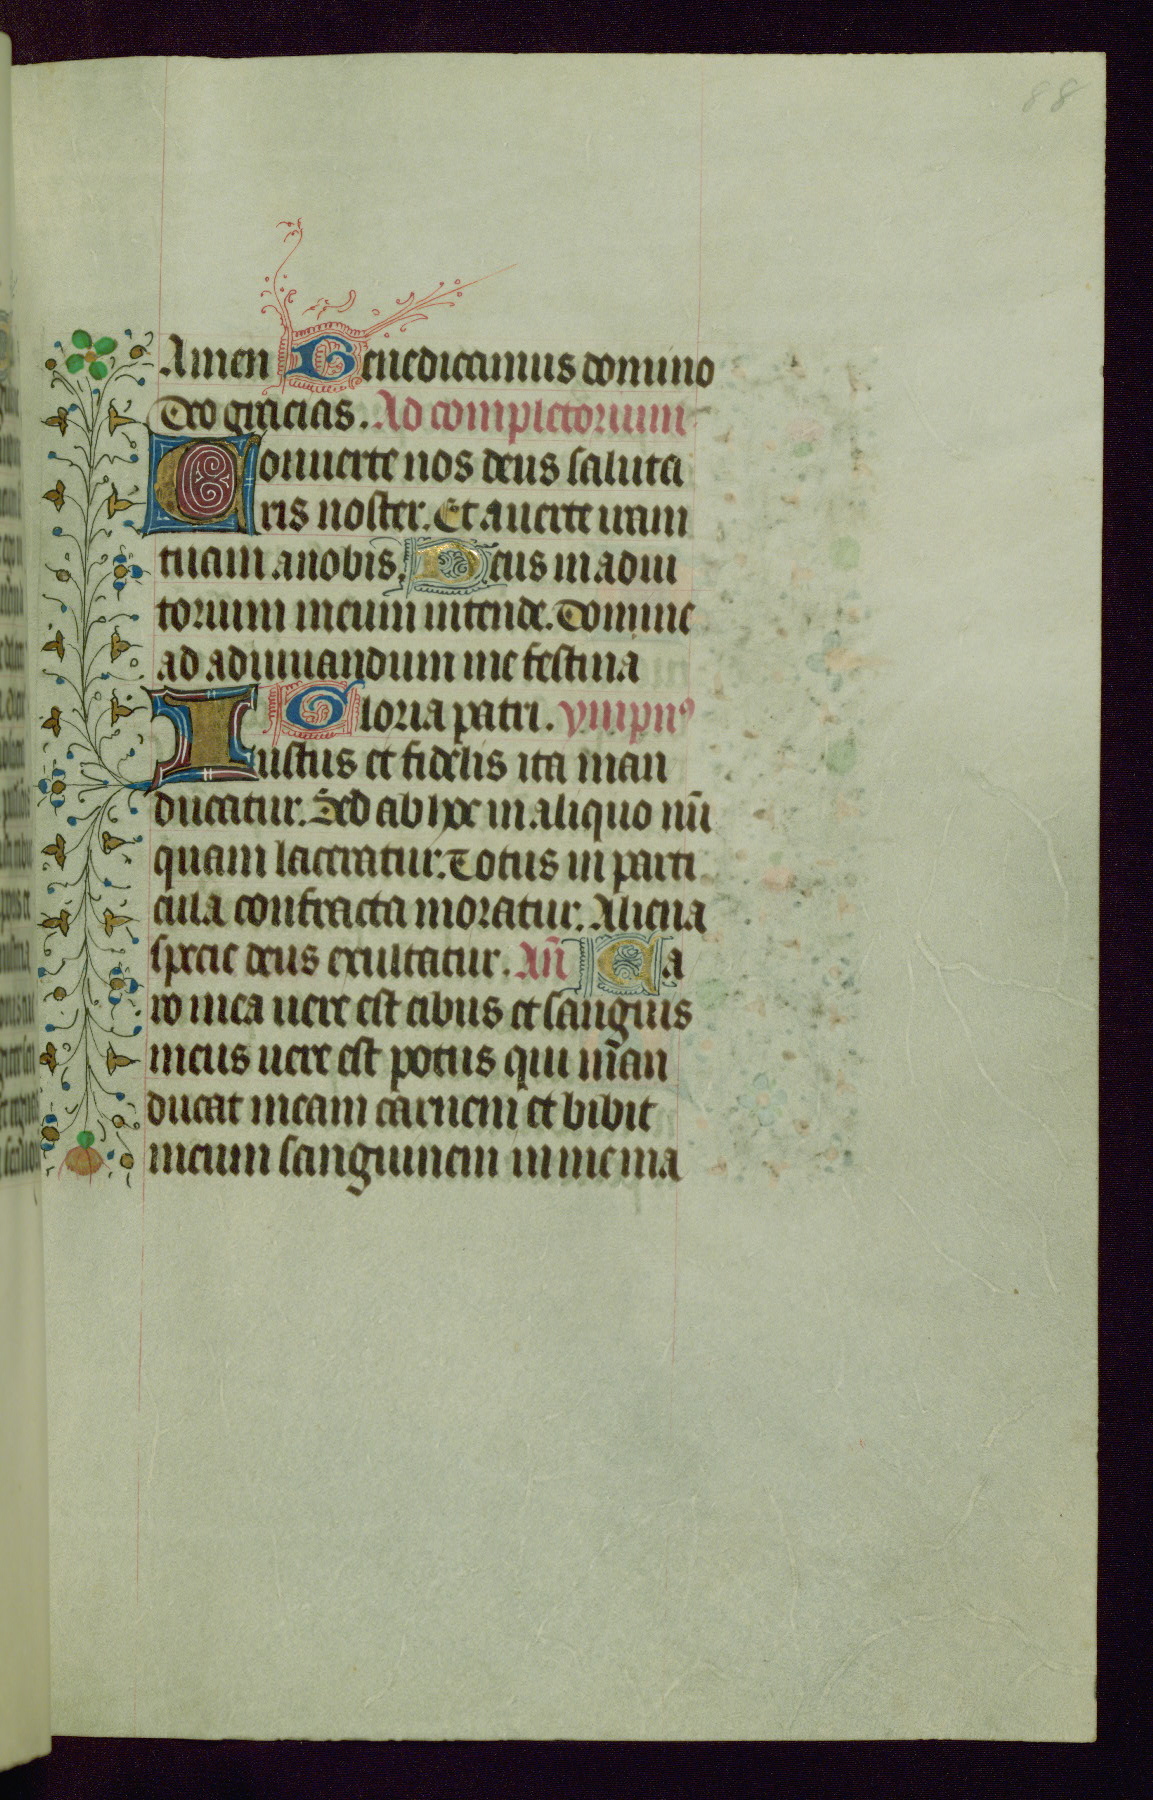 88
Amen Benedicamus domino
Deo gracias. Ad completorium
Conuerte nos deus saluta
ris noster. Et auerte iram
tuam a nobis. Deus in adiu
torium meum intende. Domine
ad adiuuandum me festina
Gloria patri. ympnꝰ
Iustus et fidelis ita man
ducatur. Sed ab hoc in aliquo nū
quam laceratur. Totus in parti
cula confracta moratur. Aliena
specie deus exultatur. Añ Ca
ro mea uere est cibus et sanguis
meus uere est potus qui man
ducat meam carnem et bibit
meum sanguinem in me ma